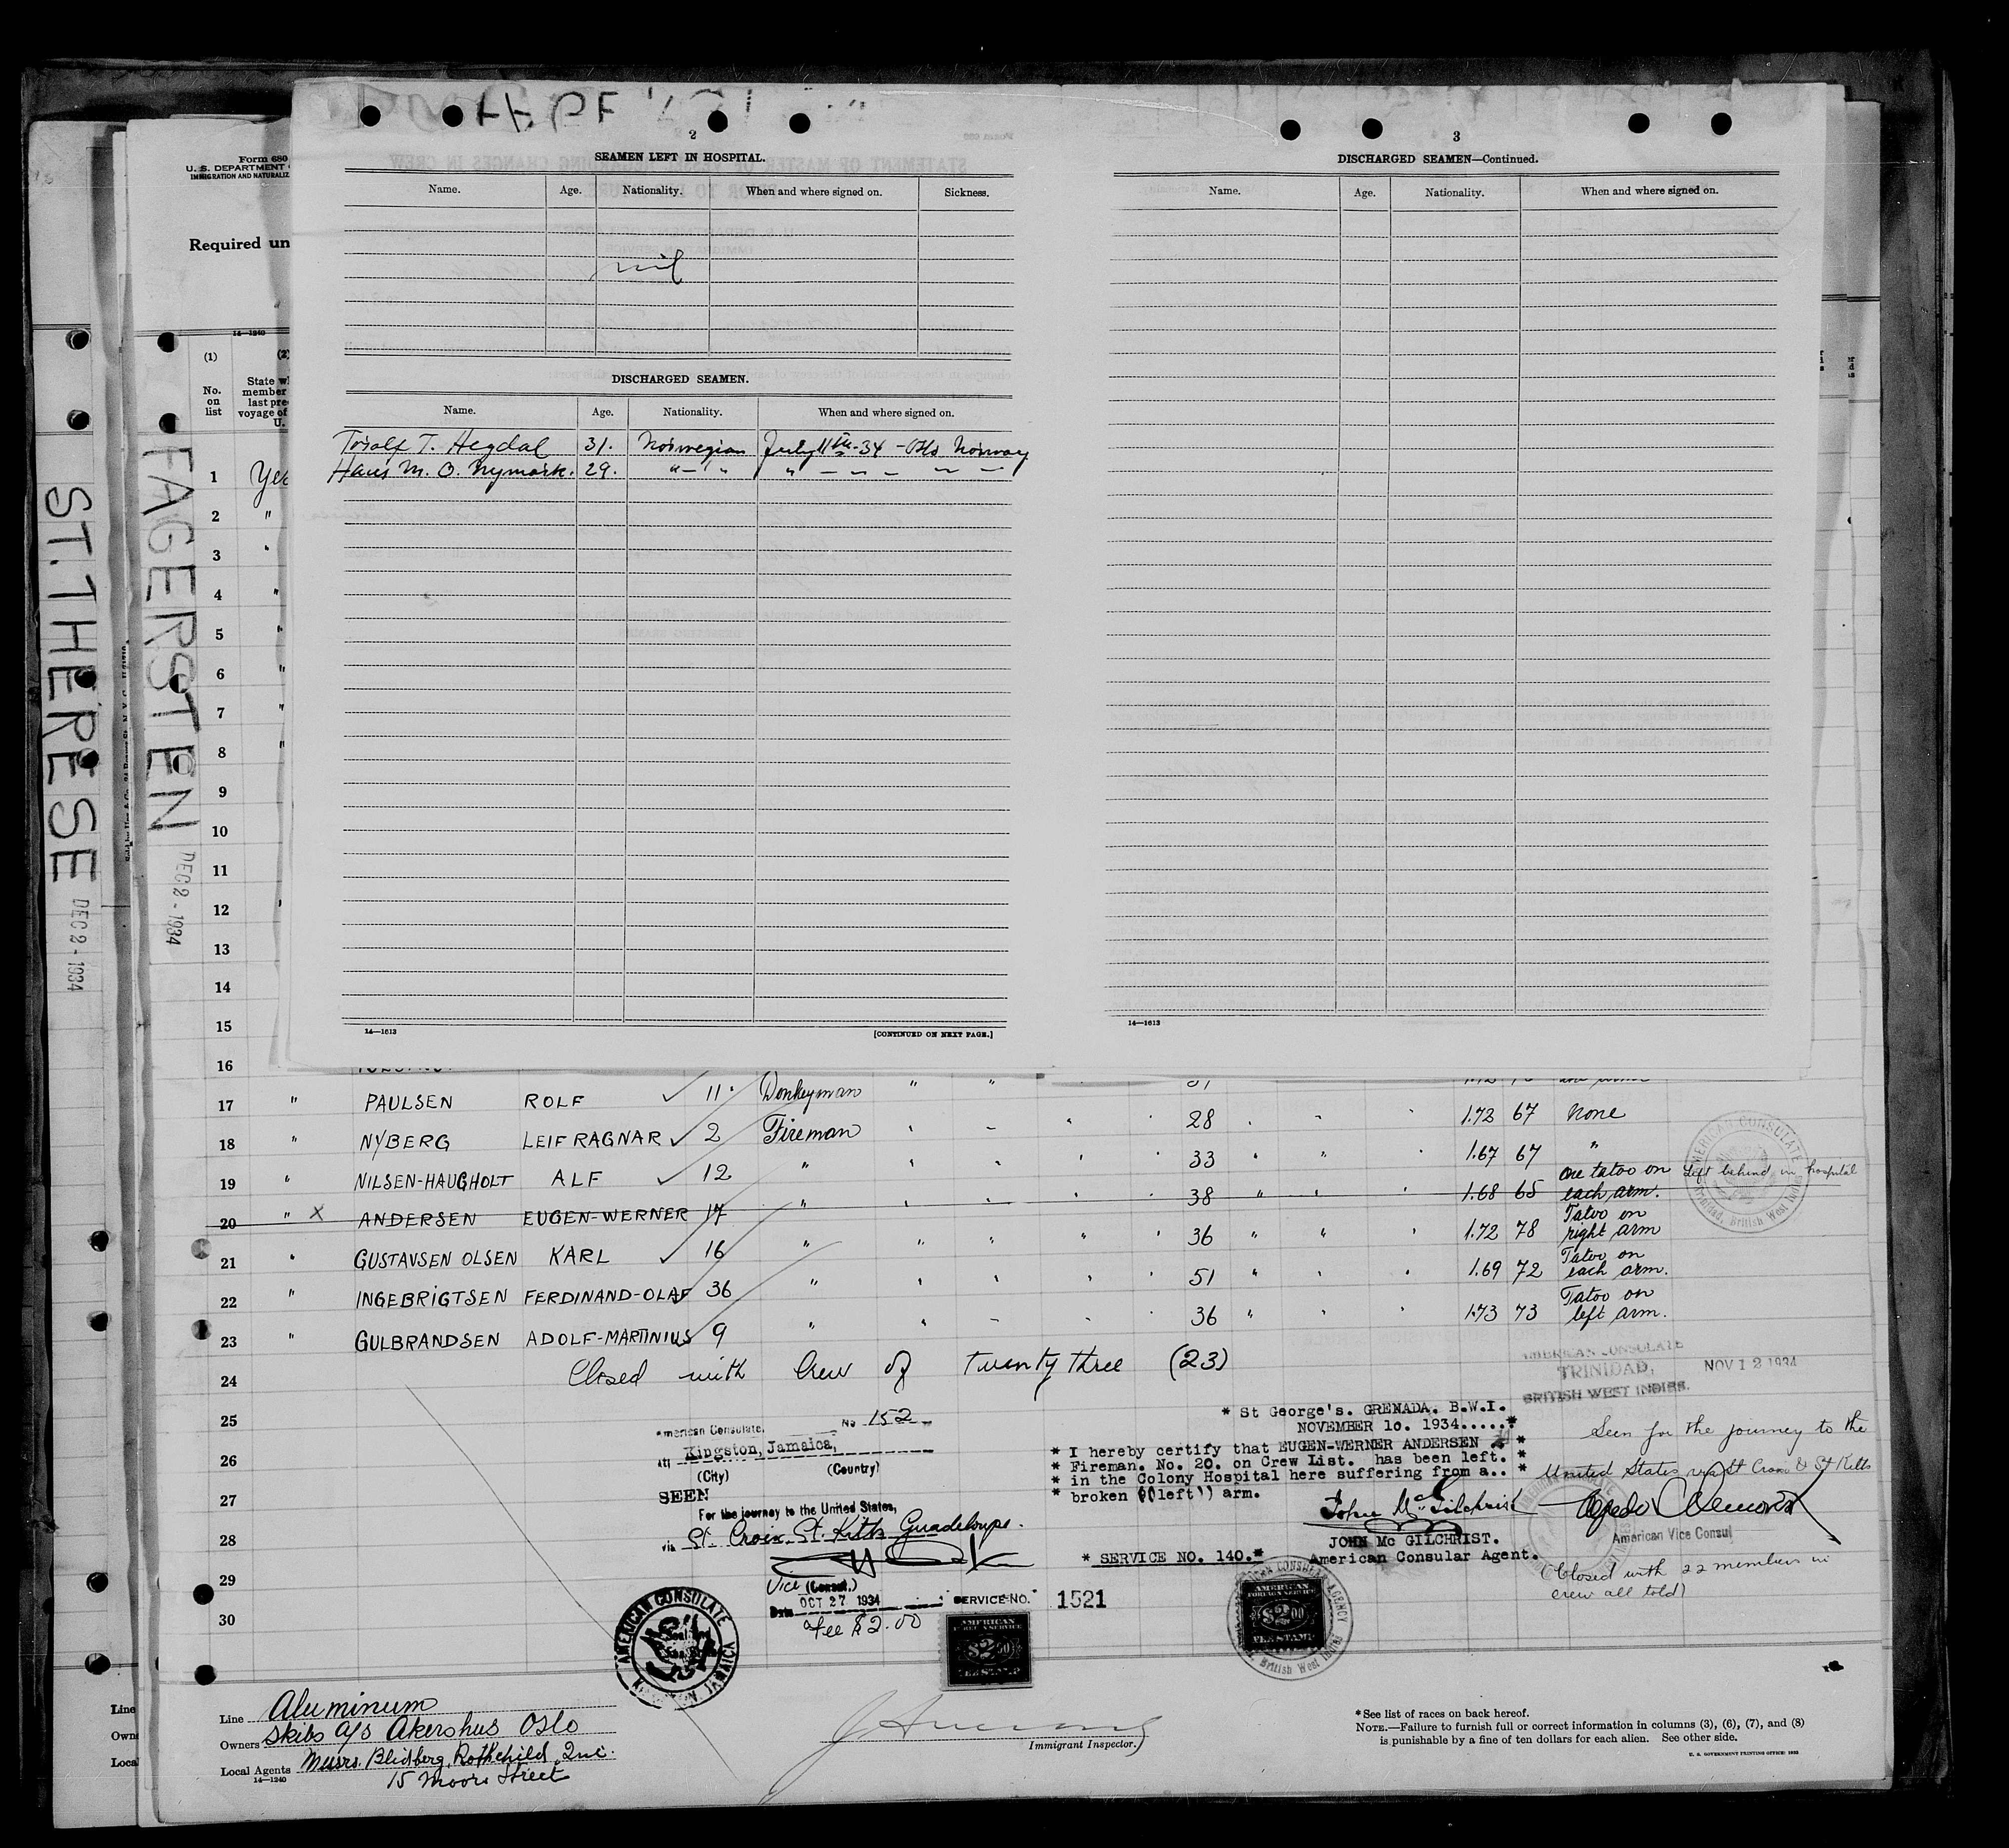 2
SEAMEN LEFT IN HOSPITAL.
Name. Age. Nationality. When and where signed on. Sickness.
nil
DISCHARGED SEAMEN.
Name. Age. Nationality. When and where signed on.
Toralf T. Hegdal 31. Norwegian July 11th-34 - Oslo Norway
Hans M. O. Nymark. 29. " - " " " - " - " -
14—1613 [CONTINUED ON NEXT PAGE.]
3
DISCHARGED SEAMEN—Continued.
Name. Age. Nationality. When and where signed on.
14—1613
ST. THERESE
DEC 2 - 1934
FAGERSTEN
DEC 2 - 1934
Form 680
U. S. DEPARTMENT
IMMIGRATION AND NATURALIZ
Required un
14—1240
(1) (2)
No. on list
State w
member
last pre
voyage of
U.
1 Yes
2 "
3 "
4 "
5 "
6 "
7 "
8 "
9
10
11
12
13
14
15
16
17 " PAULSEN ROLF ✓ 11 Donkeyman " "
18 " NYBERG LEIF RAGNAR ✓ 2 Fireman 28 1.72 67 None
19 " NILSEN-HAUGHOLT ALF ✓ 12 " 33 " " 1.67 67 "
20 " X ANDERSEN EUGEN-WERNER 17 " 38 " 1.68 65 One tatoo on each arm. Left behind in hospital
21 " GUSTAVSEN OLSEN KARL ✓ 16 " " " " 36 " " 1.72 78 Tatoo on right arm
22 " INGEBRIGTSEN FERDINAND-OLAF ✓ 36 " 51 " 1.69 72 Tatoo on each arm.
23 " GULBRANDSEN ADOLF-MARTINIUS ✓ 9 " 36 " 1.73 73 Tatoo on left arm.
24 Closed with Crew of twenty three (23)
25
26
27
28
29
30
American Consulate, No 152
at Kingston, Jamaica,
(City) (Country)
SEEN
For the journey to the United States,
via St. Croix. St. Kitts Guadeloupe.
Vice (Consul.)
Date OCT 27 1934
Fee $2.00
SERVICE NO. 1521
AMERICAN CONSULATE
KINGSTON, JAMAICA
AMERICAN
FOREIGN SERVICE
$2.00
FEE STAMP
* St George's. GRENADA. B.W.I.
NOVEMBER 10. 1934.....*
* I hereby certify that EUGEN-WERNER ANDERSEN *
* Fireman. No. 20. on Crew List. has been left. *
* in the Colony Hospital here suffering from a.. *
* broken ((left)) arm.
John McGilchrist
JOHN Mc GILCHRIST.
American Consular Agent.
* SERVICE NO. 140.*
AMERICAN CONSULAR AGENCY
British West Indies
AMERICAN
FOREIGN SERVICE
$2.00
FEE STAMP
AMERICAN CONSULATE
Trinidad, British West Indies
AMERICAN CONSULATE
TRINIDAD,
BRITISH WEST INDIES.
NOV 12 1934
Seen for the journey to the
United States via St Croix & St Kitts
American Vice Consul
(Closed with 22 members in
crew all told)
Line Aluminum
Owners Skibs a/s Akershus Oslo
Local Agents Messrs. Blidberg, Rothchild, Inc.
15 Moore Street
14—1240
Immigrant Inspector.
*See list of races on back hereof.
NOTE.—Failure to furnish full or correct information in columns (3), (6), (7), and (8)
is punishable by a fine of ten dollars for each alien. See other side.
U. S. GOVERNMENT PRINTING OFFICE: 1933
Line
Own
Local